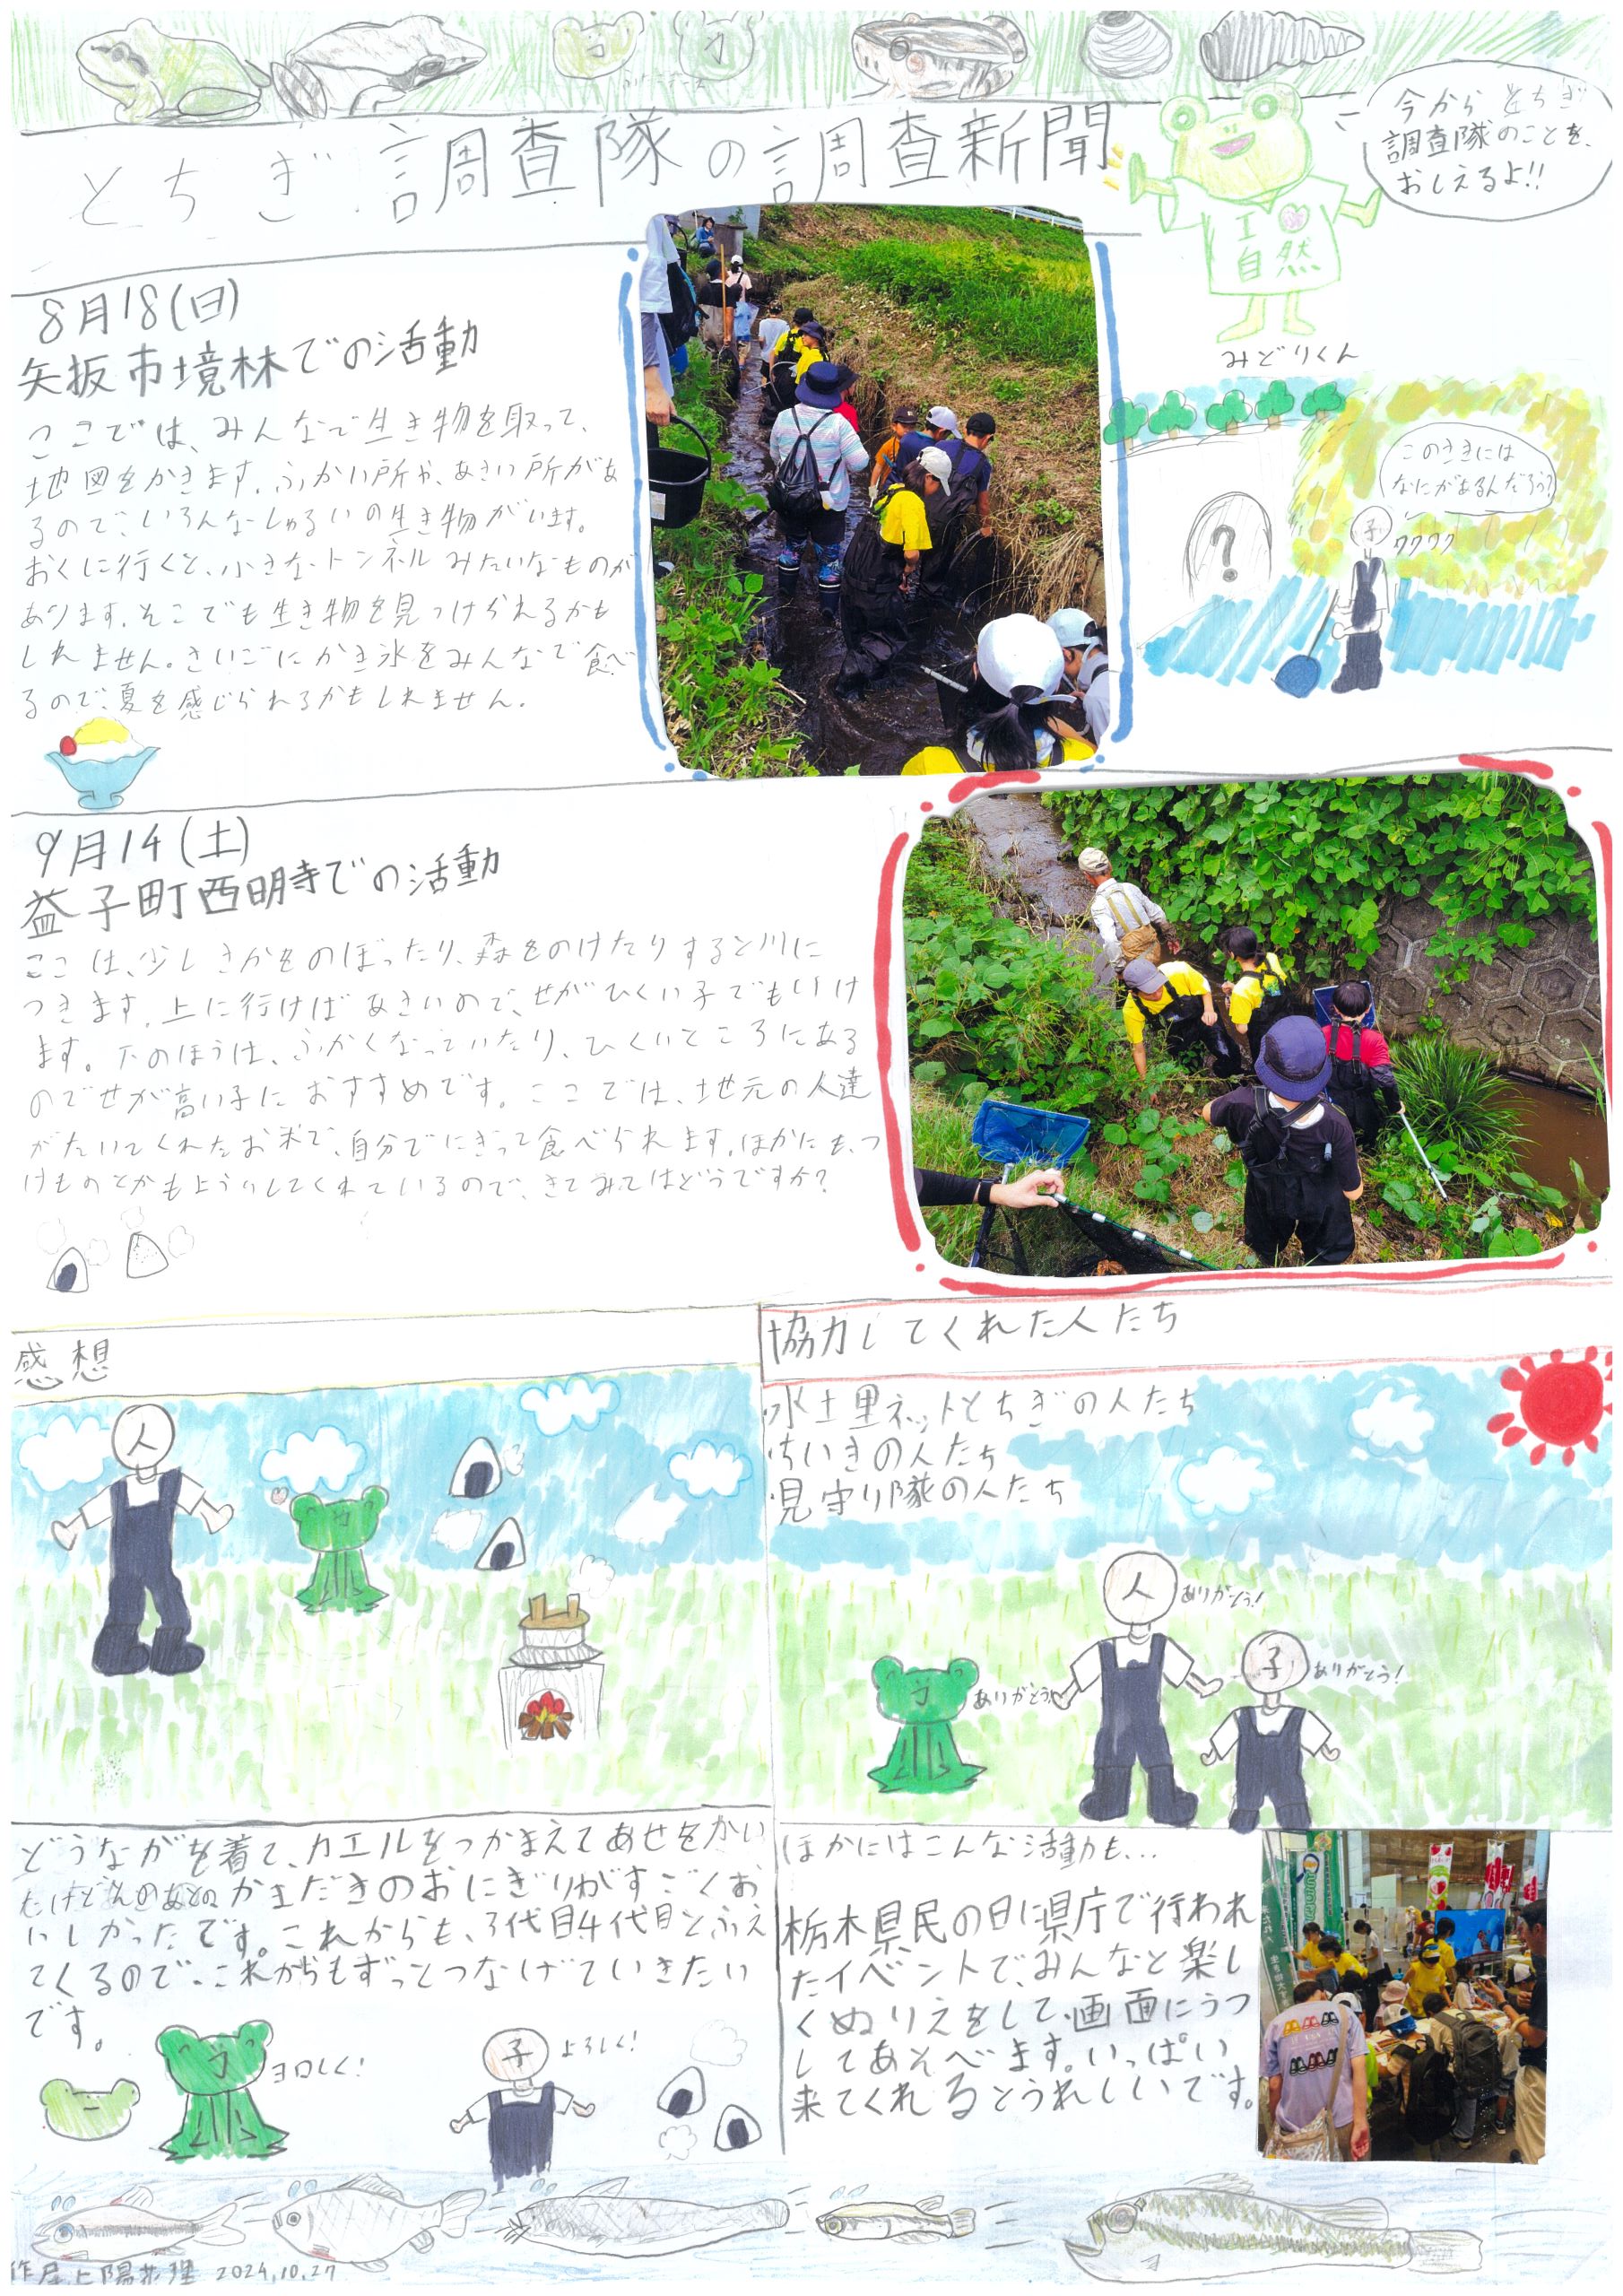 とちぎ調査隊の調査新聞
今からとちぎ
調査隊のことを、
おしえるよ!!
自然
みどりくん
8月18(日)
矢板市境林での活動
ここでは、みんなで生き物を取って、
地図をかきます。ふかい所や、あさい所があ
るので、いろんなしゅるいの生き物がいます。
おくに行くと、小さな、トンネルみたいなものが
あります。そこでも生き物を見つけられるかも
しれません。さいごにかき氷をみんなで食べ
るので、夏を感じられるかもしれません。
このさきには
なにがあるんだろう?
子
ワクワク
?
9月14(土)
益子町西明寺での活動
ここは、少しさかをのぼったり、森をのけたりすると川に
つきます。上に行けばあさいので、せがひくい子でもいけ
ます。下のほうは、ふかくなっていたり、ひくいところにある
のでせが高い子におすすめです。ここでは、地元の人達
がたいてくれたお米で、自分でにぎって食べられます。ほかにも、つ
けものとかもよういしてくれているので、きてみてはどうですか?
感想
人
協力してくれた人たち
水土里ネットとちぎの人たち
ちいきの人たち
見守り隊の人たち
人
ありがとう!
子
ありがとう!
ありがとう!
どうながを着て、カエルをつかまえてあせをかい
たけどそのあとのかまだきのおにぎりがすごくお
いしかったです。これからも、3代目4代目とふえ
てくるので、これからもずっとつなげていきたい
です。
ヨロしく!
子
よろしく!
ほかにはこんな活動も...
栃木県民の日に県庁で行われ
たイベントで、みんなと楽し
くぬりえをして、画面にうつ
してあそべます。いっぱい
来てくれるとうれしいです。
2024.10.27